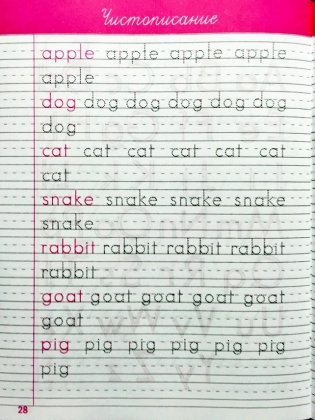 Чистописание
apple apple apple apple
apple
dog dog dog dog dog dog
dog
cat cat cat cat cat cat
cat
snake snake snake snake
snake
rabbit rabbit rabbit rabbit
rabbit
goat goat goat goat goat
goat
pig pig pig pig pig pig
pig
28